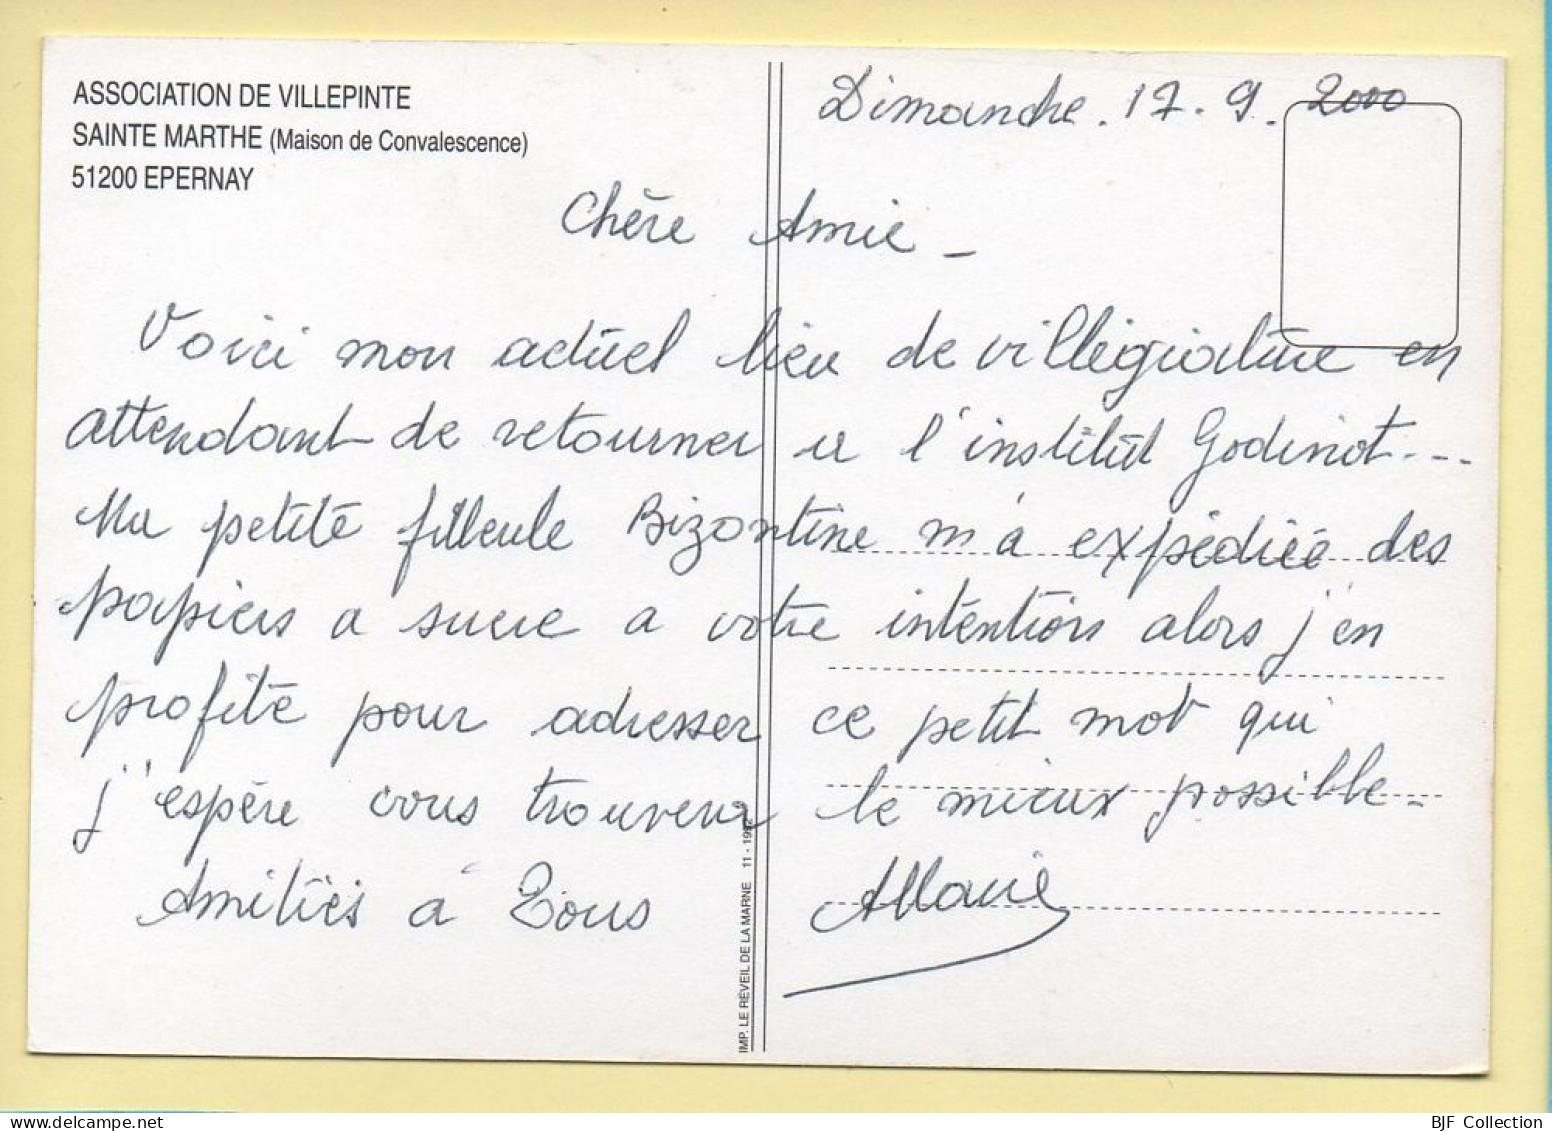 ASSOCIATION DE VILLEPINTE
SAINTE MARTHE (Maison de Convalescence)
51200 EPERNAY
Dimanche. 17. 9. 2000
Chère Amie -
Voici mon actuel lieu de villégiature en
attendant de retourner a l'institut Godinot...
Ma petite filleule Bizontine m'a expédiée des
papiers a sucre a votre intention alors j'en
profite pour adresser ce petit mot qui
j'espère vous trouvera le mieux possible -
Amitiés à Tous
IMP. LE RÉVEIL DE LA MARNE 11 - 1992
BJF Collection